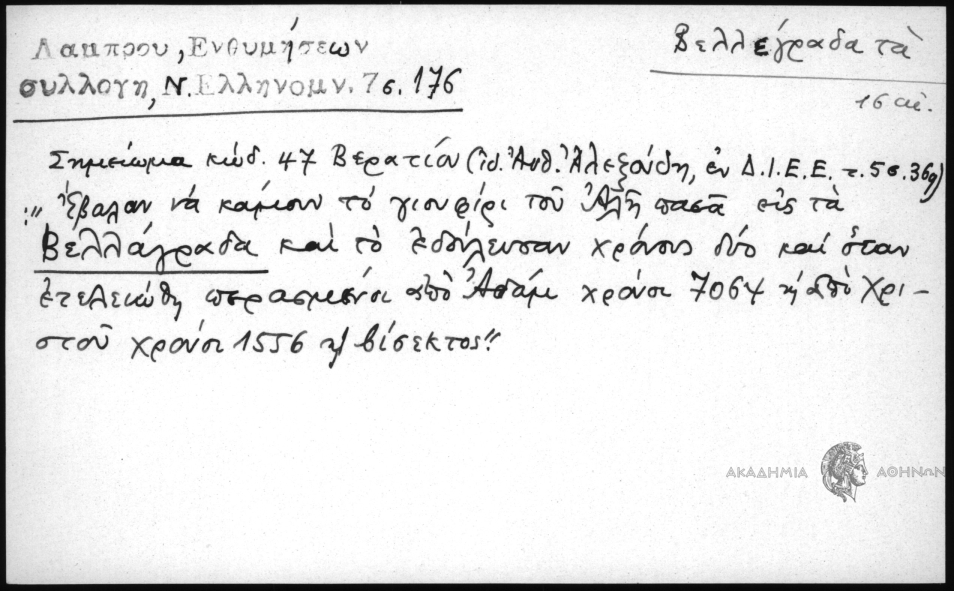 Λαμπρου, Ενθυμήσεων
συλλογη, Ν. Ελληνομν. 7 σ. 176
Βελλέγραδα τὰ
16 αἰ.
Σημείωμα κώδ. 47 Βερατίου (ἰδ. Ἀνθ. Ἀλεξούδη, ἐν Δ.Ι.Ε.Ε. τ. 5 σ. 369)
:" Ἔβαλαν νὰ κάμουν τὸ γιοφίρι τοῦ Ἀλῆ πασᾶ εἰς τὰ
Βελλάγραδα καὶ τὸ ἐδούλευσαν χρόνους δύο καί ὅταν
ἐτελειώθη περασμένοι ἀπὸ Ἀδάμ χρόνοι 7064 ἠ ἀπὸ Χρι-
στοῦ χρόνοι 1556 ἦ βίσεκτος"
ΑΚΑΔΗΜΙΑ ΑΘΗΝΩΝ